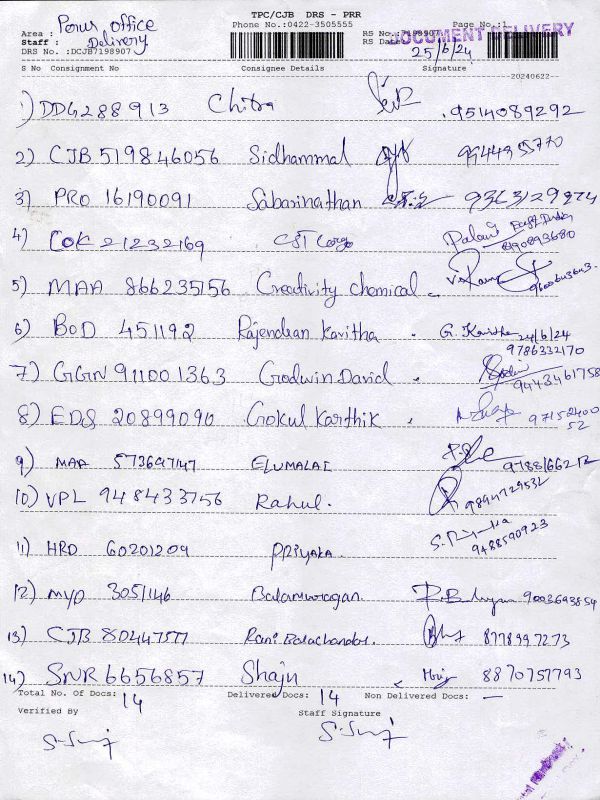 TPC/CJB DRS - PRR
Phone No.:0422-3505555 Page No.:1
Area : Porur office
Staff : Delivery
DRS No. :DCJB7198907
RS No.:7198907
DOCUMENT DELIVERY
RS Da 25/6/24
S No Consignment No Consignee Details Signature
20240622
1) DDG288913 Chitra 9514089292
2) CJB 519846056 Sidhammal
3) PRO 16190091 Sabarinathan 9363129874
4) COK 21232169 CST Cargo Palani East India 890893680
5) MAA 866235156 Creativity chemical 9600643643
6) BOD 451192 Rajendran Kavitha G. Kavitha 24/6/24
9786332170
7) GGN 911001363 Godwin David 9443461758
8) EDS 20899090 Gokul Karthik 97152400
52
9) MAA 573697147 ELUMALAI 9788166212
10) VPL 948433756 Rahul. 9894729532
11) HRD 60201209 PRIYAKA. 9488590923
12) MYD 3051146 Balamurugan 9003693854
13) CJB 80447577 Rani Balachandar. 8778997273
14) SNR 6656857 Shaju 8870757793
Total No. Of Docs: 14 Delivered Docs: 14 Non Delivered Docs: —
Verified By Staff Signature